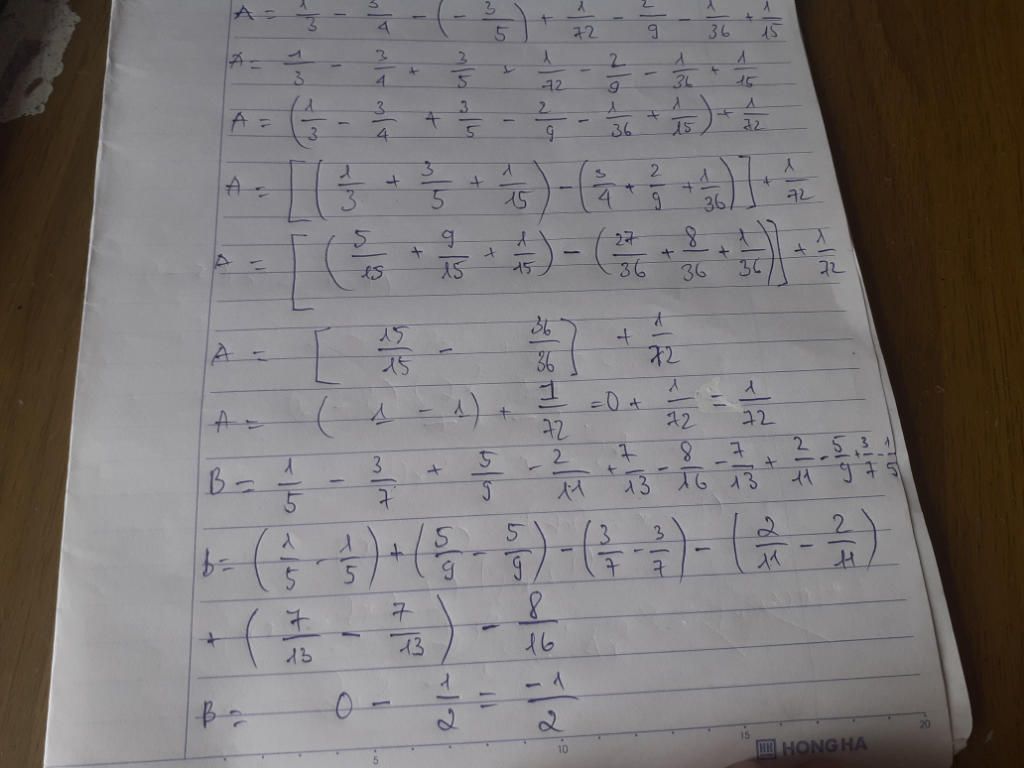 A = 1/3 - 3/4 - (- 3/5) + 1/72 - 2/9 - 1/36 + 1/15
A = 1/3 - 3/4 + 3/5 + 1/72 - 2/9 - 1/36 + 1/15
A = (1/3 - 3/4 + 3/5 - 2/9 - 1/36 + 1/15) + 1/72
A = [(1/3 + 3/5 + 1/15) - (3/4 + 2/9 + 1/36)] + 1/72
A = [(5/15 + 9/15 + 1/15) - (27/36 + 8/36 + 1/36)] + 1/72
A = [15/15 - 36/36] + 1/72
A = (1 - 1) + 1/72 = 0 + 1/72 = 1/72
B = 1/5 - 3/7 + 5/9 - 2/11 + 7/13 - 8/16 - 7/13 + 2/11 - 5/9 + 3/7 - 1/5
B = (1/5 - 1/5) + (5/9 - 5/9) - (3/7 - 3/7) - (2/11 - 2/11)
+ (7/13 - 7/13) - 8/16
B = 0 - 1/2 = -1/2
5 10 15 20
HH HONG HA